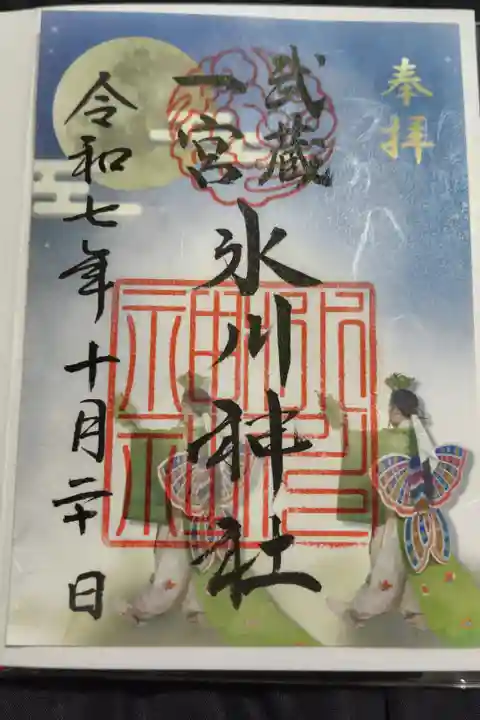 奉拝
武蔵
一宮
氷川神社
令和七年十月二十日
氷川
神社